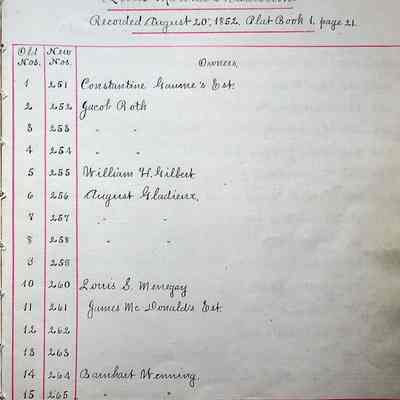 Recorded August 20", 1852. Plat Book 1, page 21.
Old Nos. New Nos. Owners.
1 251 Constantine Gaume's Est.
2 252 Jacob Roth
3 253 " "
4 254 " "
5 255 William H. Gilbert
6 256 August Gladieux,
7 257 " "
8 258 " "
9 259
10 260 Louis S. Menegay
11 261 James Mc Donald's Est.
12 262
13 263
14 264 Barnhart Wenning,
15 265 " "